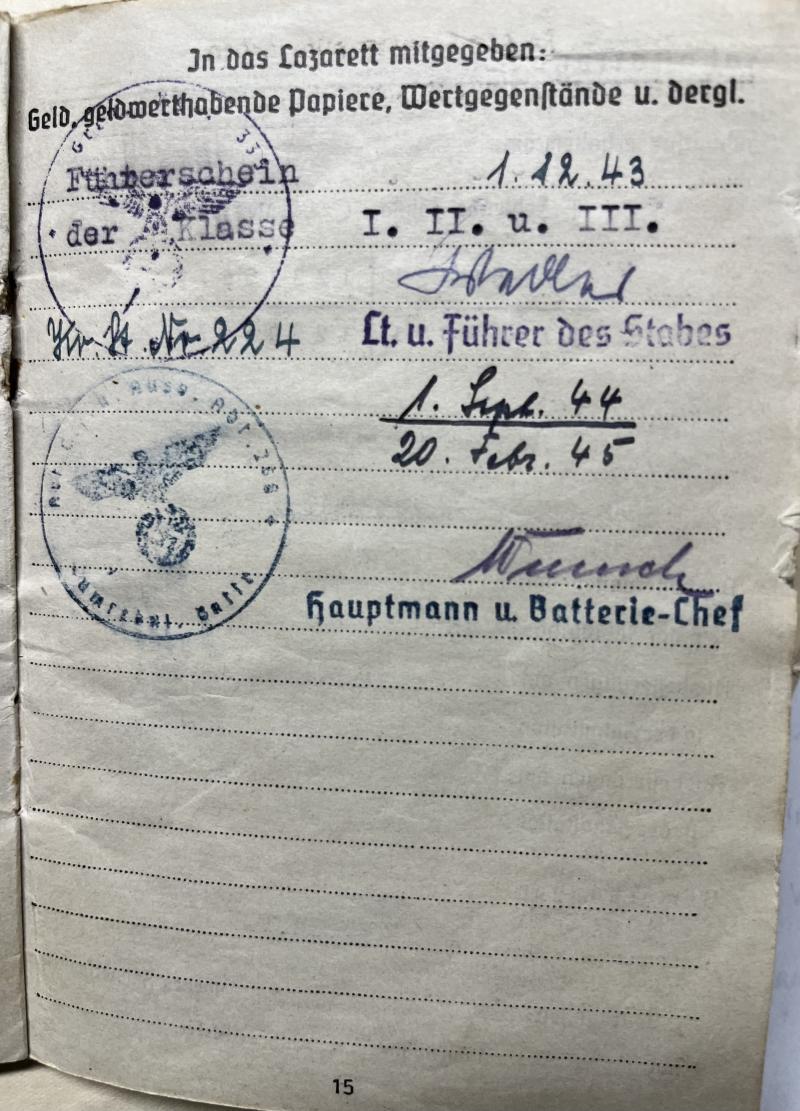 In das Lazarett mitgegeben:
Geld, geldwerthabende Papiere, Wertgegenstände u. dergl.
Führerschein 1.12.43
der Klasse I. II. u. III.
Nr. 224 Lt. u. Führer des Stabes
1. Sept. 44
20. Febr. 45
Hauptmann u. Batterie-Chef
15